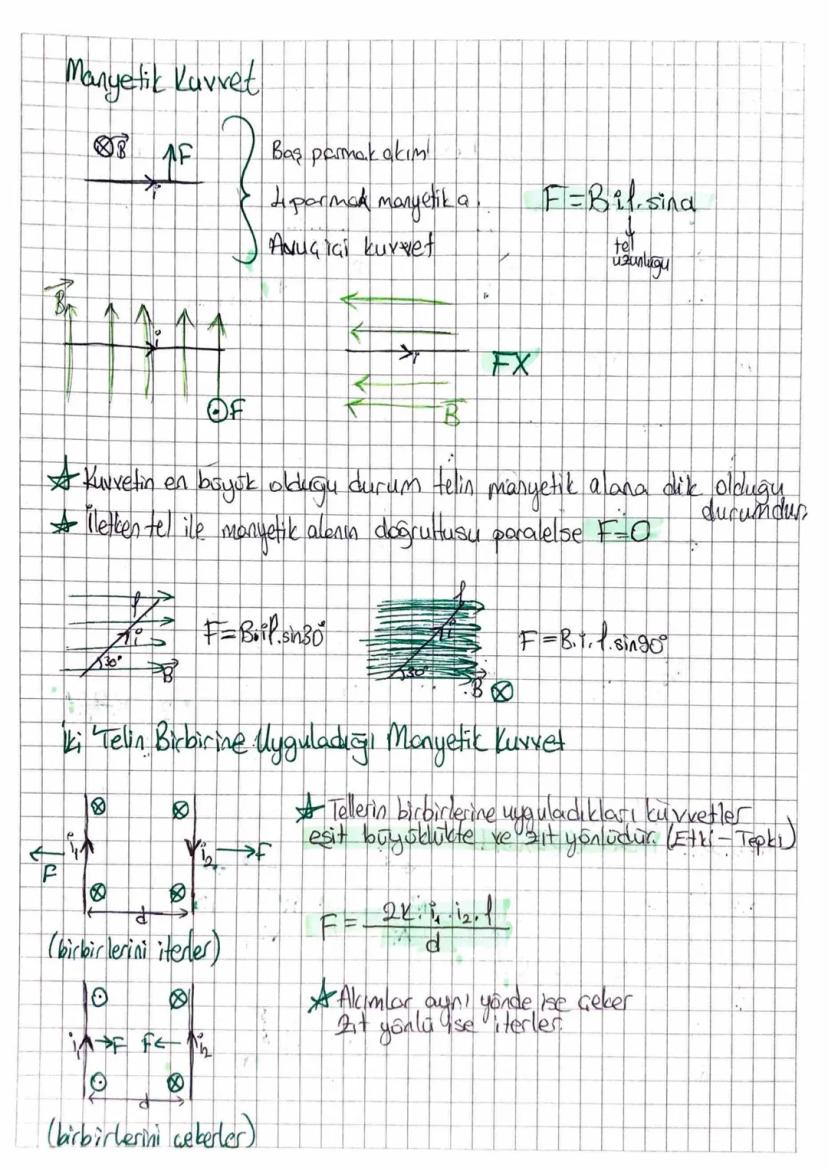 Manyetik Kuvvet
⊗B F
i
Baş parmak akım
4 parmak manyetik a.
Avuç içi kuvvet
F=B.i.l.sinα
tel
uzunluğu
B i
⊙F
i FX
B
☆ Kuvvetin en büyük olduğu durum telin manyetik alana dik olduğu
durumdur.
☆ İletken tel ile manyetik alanın doğrultusu paralelse F=0
l i 30° B
F=B.i.l.sin30°
l i 30° B ⊗
F=B.i.l.sin90°
İki Telin Birbirine Uyguladığı Manyetik Kuvvet
⊗ ⊗
F i₁ i₂ F
⊗ ⊗
d
(birbirlerini iterler)
☆ Tellerin birbirlerine uyguladıkları kuvvetler
eşit büyüklükte ve zıt yönlüdür. (Etki-Tepki)
F= 2K.i₁.i₂.l
d
⊙ ⊗
i₁ F F i₂
⊙ ⊗
d
(birbirlerini çekerler)
☆ Akımlar aynı yönde ise çeker
Zıt yönlü ise iterler.